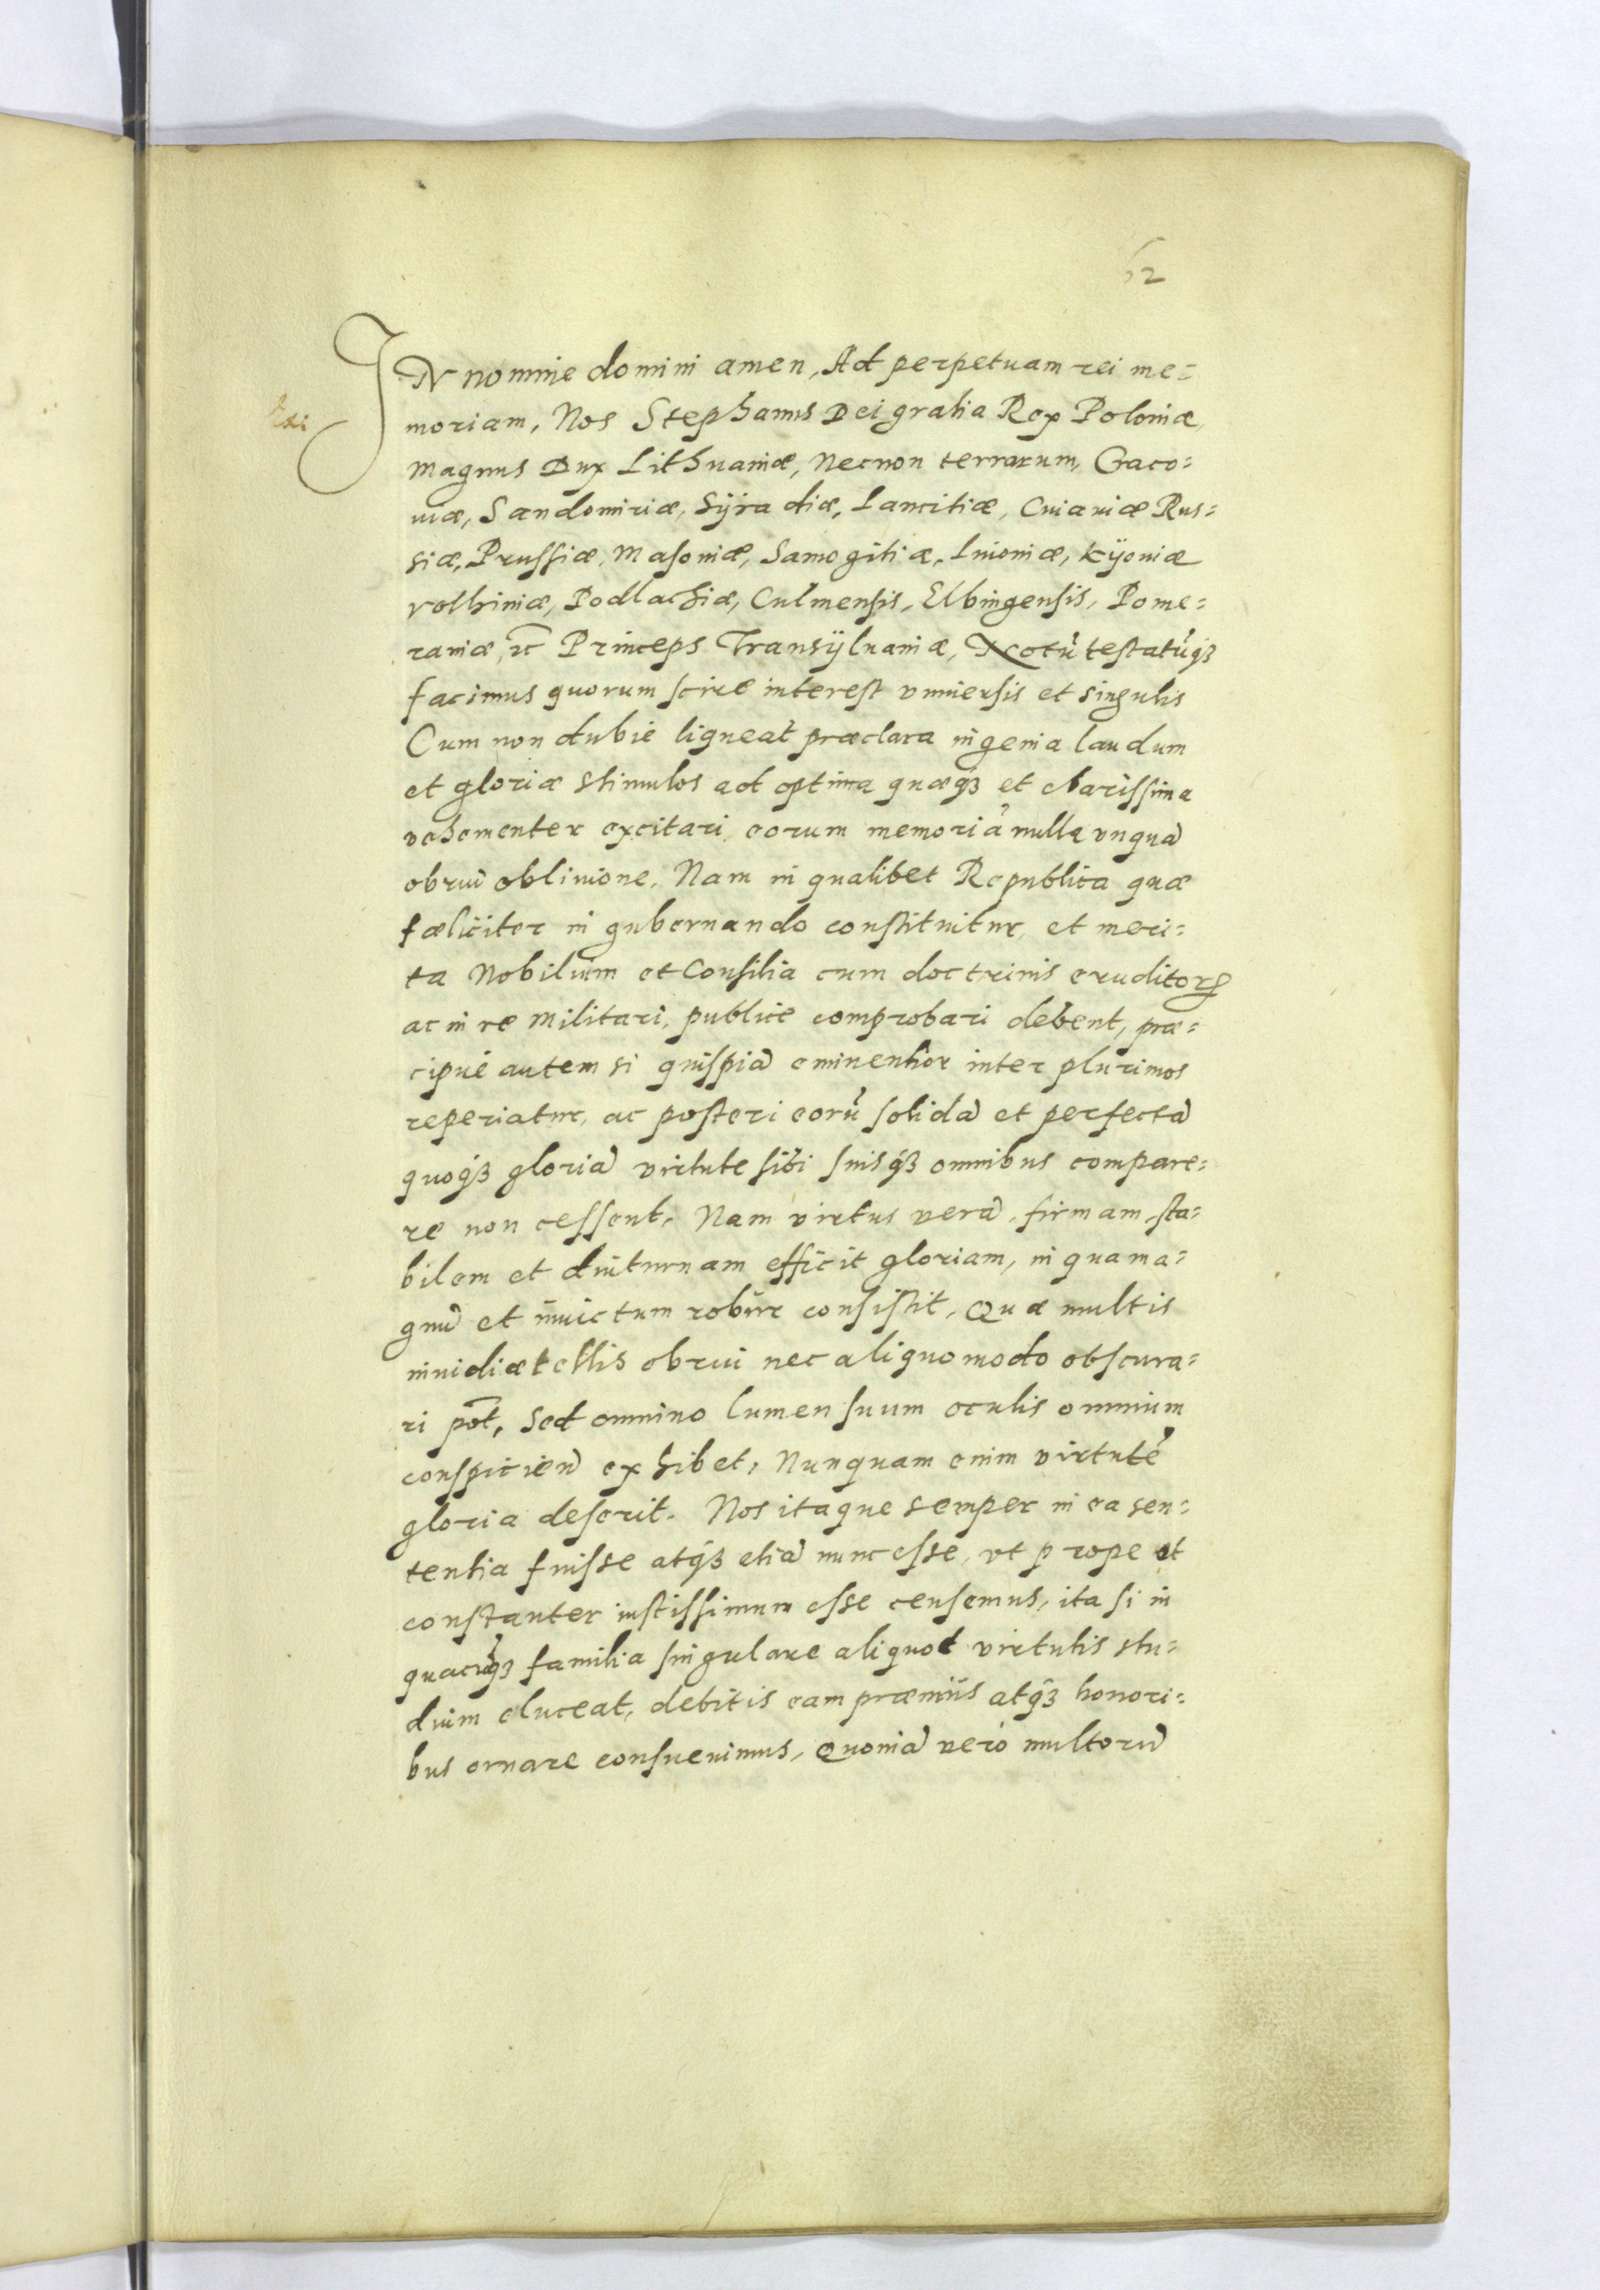 12
IN nomine domini amen, Ad perpetuam rei me=
moriam, Nos Stephanus Dei gratia Rex Poloniæ
Magnus Dux Lithuaniæ, Necnon terrarum, Craco=
uiæ, Sandomiriæ, Syradiæ, Lancitiæ, Cuiauiæ Rus=
siæ, Prussiæ, Masoniæ, Samogitiæ, Liuoniæ, Kÿouiæ
volhiniæ, Podlachiæ, Culmensis, Elbingensis, Pome=
raniæ, ꝛc Princeps Transÿluaniæ, Notũ testatũqȝ
facimus quorum scire interest vniuersis et singulis
Cum non dubie liqueat præclara ingenia laudum
et gloriæ stimulos ad optima quæqȝ et clarissima
vehementer excitari, eorum memoriã nulla vnquã
obrui obliuione, Nam in qualibet Republica quæ
fæliciter in gubernando constituitur, et meri=
ta Nobilium et Consilia cum doctrinis eruditorꝝ
ac in re Militari, publice comprobari debent, præ=
cipué autem si quispiã eminentior inter plurimos
reperiatur, ac posteri eorũ solidã et perfectã
quoqȝ gloriã virtute sibi suisqȝ omnibus compare=
re non cessent, Nam virtus verã, firmam, sta=
bilem et diuturnam efficit gloriam, in qua ma=
gnũ et inuictum robur consistit, Quæ multis
inuidiæ tellis obrui nec aliquo modo obscura=
ri pot̃, Sed omnino lumen suum oculis omnium
conspiciend exhibet, Nunquam enim virtutẽ
gloria deserit. Nos itaque semper in ea sen=
tentia fuisse atqȝ etiã nunc esse, vt prope et
constanter iustissimum esse censemus, ita si in
quacũqȝ familia singulare aliquod virtutis stu=
dium eluceat, debitis eam præmiis atqȝ honori=
bus ornare consueuimus, Quoniã verò multorũ